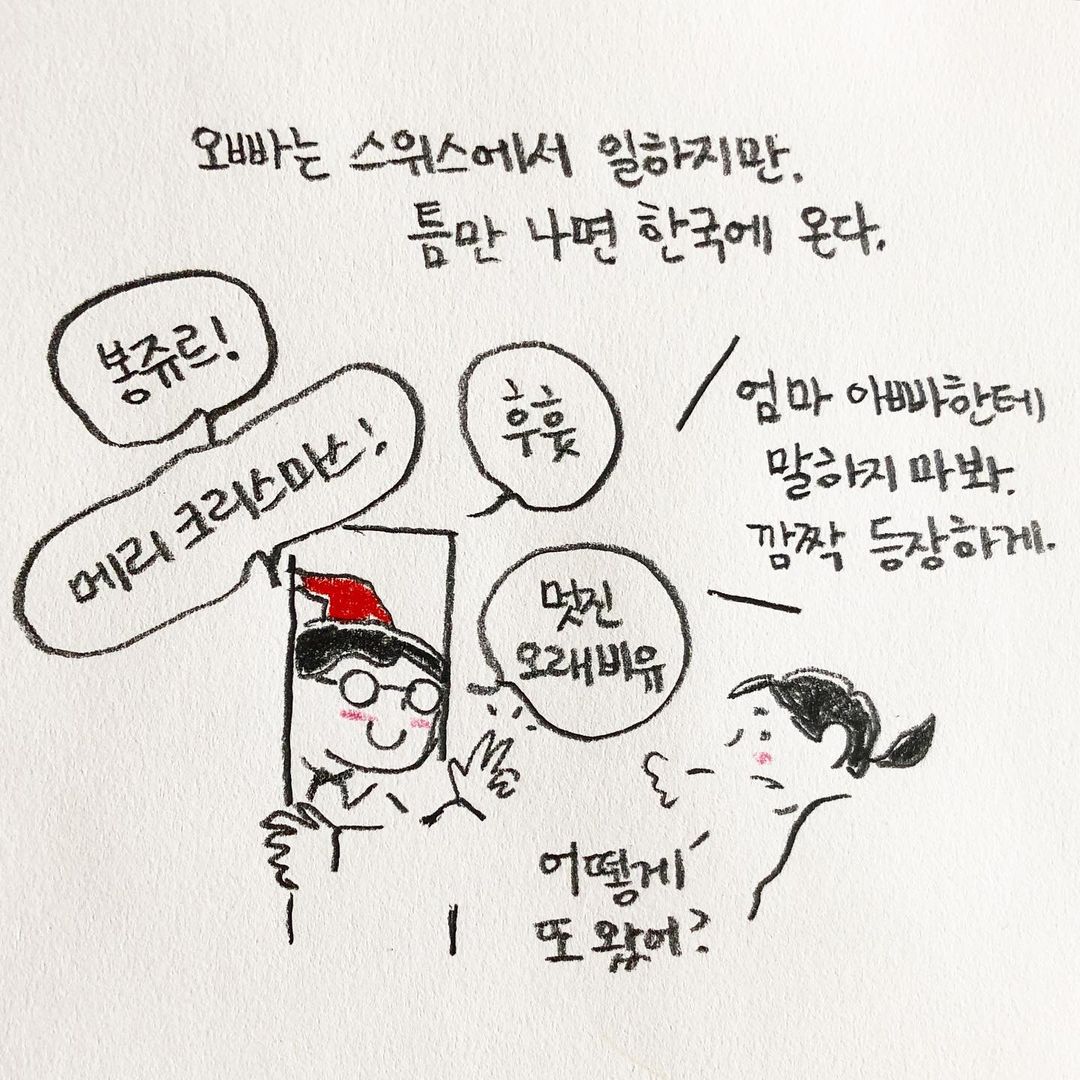 오빠는 스위스에서 일하지만.
틈만 나면 한국에 온다.
봉쥬르!
메리 크리스마스!
후훗
엄마 아빠한테
말하지 마봐.
깜짝 등장하게.
멋진
오래비유
어떻게
또 왔어?